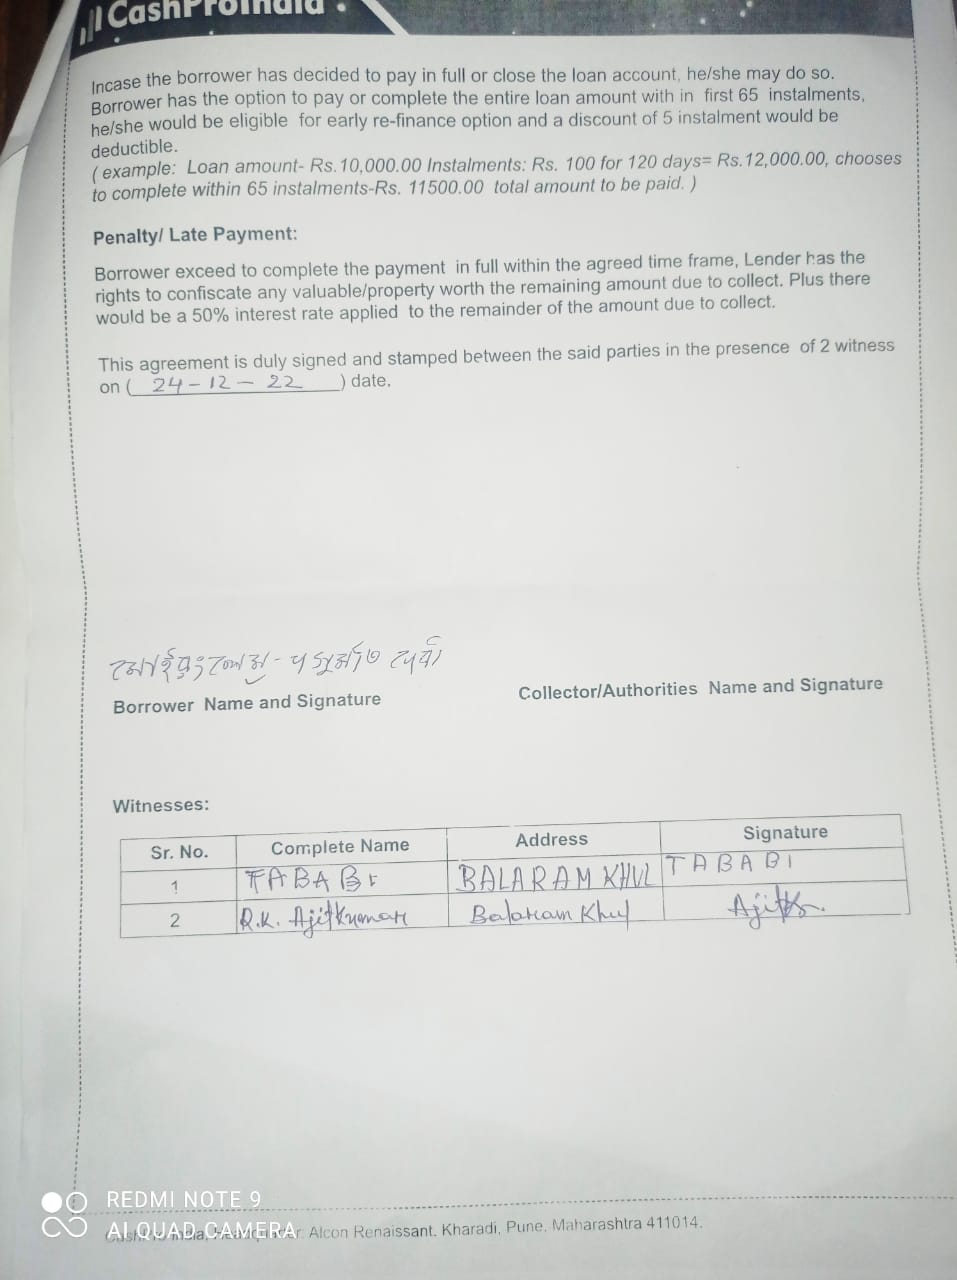 CashProIndia
Incase the borrower has decided to pay in full or close the loan account, he/she may do so.
Borrower has the option to pay or complete the entire loan amount with in first 65 instalments,
he/she would be eligible for early re-finance option and a discount of 5 instalment would be
deductible.
(example: Loan amount- Rs.10,000.00 Instalments: Rs. 100 for 120 days= Rs.12,000.00, chooses
to complete within 65 instalments-Rs. 11500.00 total amount to be paid. )
Penalty/ Late Payment:
Borrower exceed to complete the payment in full within the agreed time frame, Lender has the
rights to confiscate any valuable/property worth the remaining amount due to collect. Plus there
would be a 50% interest rate applied to the remainder of the amount due to collect.
This agreement is duly signed and stamped between the said parties in the presence of 2 witness
on ( 24-12-22 ) date.
Borrower Name and Signature
Collector/Authorities Name and Signature
Witnesses:
Sr. No. Complete Name Address Signature
1 TABABI BALARAM KHUL TABABI
2 R.K. Ajitkumar Balaram Khul Ajitk
REDMI NOTE 9
AI QUAD CAMERA
Alcon Renaissant, Kharadi, Pune, Maharashtra 411014.